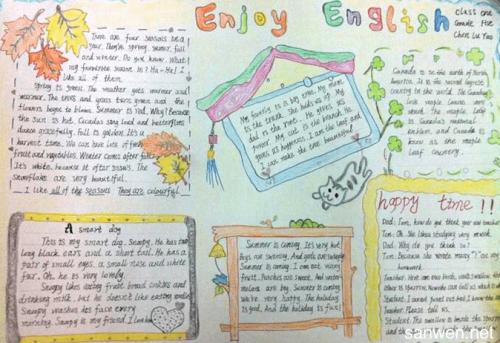 Enjoy English
Class one
Grade Five
Chen Lu Yao
There are four seasons in a
year. They're spring, summer, fall
and winter. Do you know What
my favourite season is? Ha-Ha! I
like all of them.
Spring is green. The weather gets warmer and
warmer. The trees and grass turn green and the
flowers begin to bloom. Summer is red. Why? Because
the sun is hot. Cicadas sing loud and butterflies
dance gracefully. Fall is golden. It's a
harvest time. We can have lots of fresh
fruit and vegetables. Winter comes after fall.
It's white, because it often snows. The
Snowflakes are very beautiful.
I like all of the seasons. They are colourful.
My family is a big tree. My mom
is the trunk. She holds us up. My
dad is the root. He gives us
power. My cat is the branch. He
gives us happiness. I am the leaf and
I can make the tree beautiful!
Canada is in the north of North
America. It is the second largest
country in the world. The Country
less people. Canadians very
much. The maple leaf
is Canada's national
emblem. and Canada is
known as the maple
leaf country.
A smart dog
This is my smart dog, Snoopy. He has two
long black ears and a short tail. He has a
pair of small eyes, a small nose and white
fur. Oh, he is very lovely.
Snoopy likes eating fruit bread cookies and
drinking milk. but he doesn't like eating
Snoopy washes his face every
morning. Snoopy is my friend. I love him
Summer is coming. It's very hot.
Boys are swimming, And girls are swinging.
Summer is coming. I can eat many
fruit. Peaches are sweet, And water-
melons are big. Summer is coming
we're very happy. The holiday
is good, And the holiday is fun.
happy time!!
Dad: Tom, how do you think your new teacher
Tom: Oh. She likes studying very much.
Dad: Why do you think so?
Tom: Because she wrote many "X" on my
homework.
Teacher: Here are two birds, one is swallow, the
other is sparrow. Now who can tell us which is
Student: I cannot point out but I know the
Teacher: Please tell us.
Student: The swallow is beside the sparrow
and the
sanwen.net